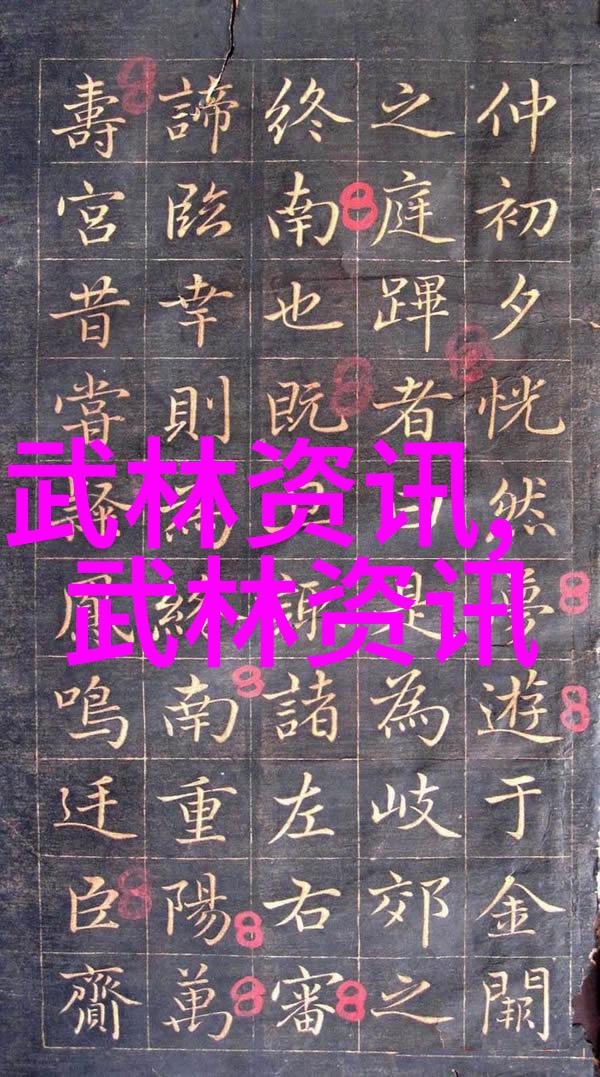 仲初夕恍然夢遊于金闕
之庭蹕者曰是為岐郊之
終南也既諏諸左右審
諦臨幸則為終南重陽萬
壽宮昔嘗經鳳鳴廷臣齎
武林资讯,
武林资讯